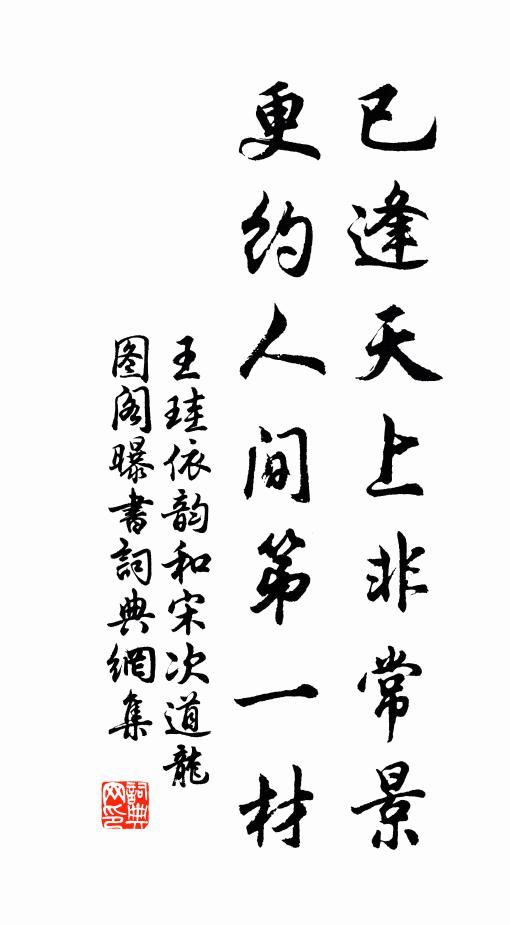 已逢天上非常景
更约人间第一材
王珪依韵和宋次道龍
图阁曝書詞典網集
詞典网印